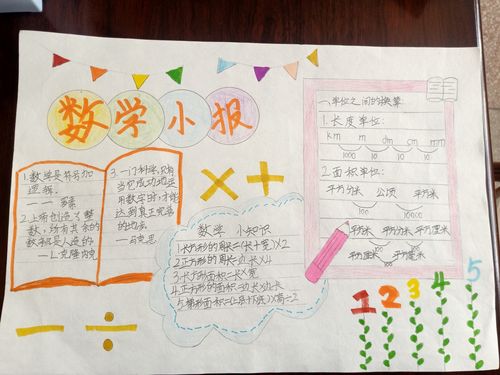 数学小报
1.数学是符号加
逻辑。
——罗素
2.上帝创造了整
数，所有其余的
数都是人造的。
——L·克隆内克
3.一门科学，只有
当它成功地运
用数学时，才能
达到真正完善
的地步。
——马克思
×+
—÷
数学 小知识
1.长方形的周长=(长+宽)×2
2.正方形的周长=边长×4
3.长方形面积=长×宽
4.正方形的面积=边长×边长
5.梯形面积=(上底+下底)×高÷2
一、单位之间的换算
1.长度单位：
km m dm cm mm
1000 10 10 10
2.面积单位：
平方千米 公顷 平方米
100 10000
平方米 平方分米 平方厘米
100 100
1 2 3 4 5